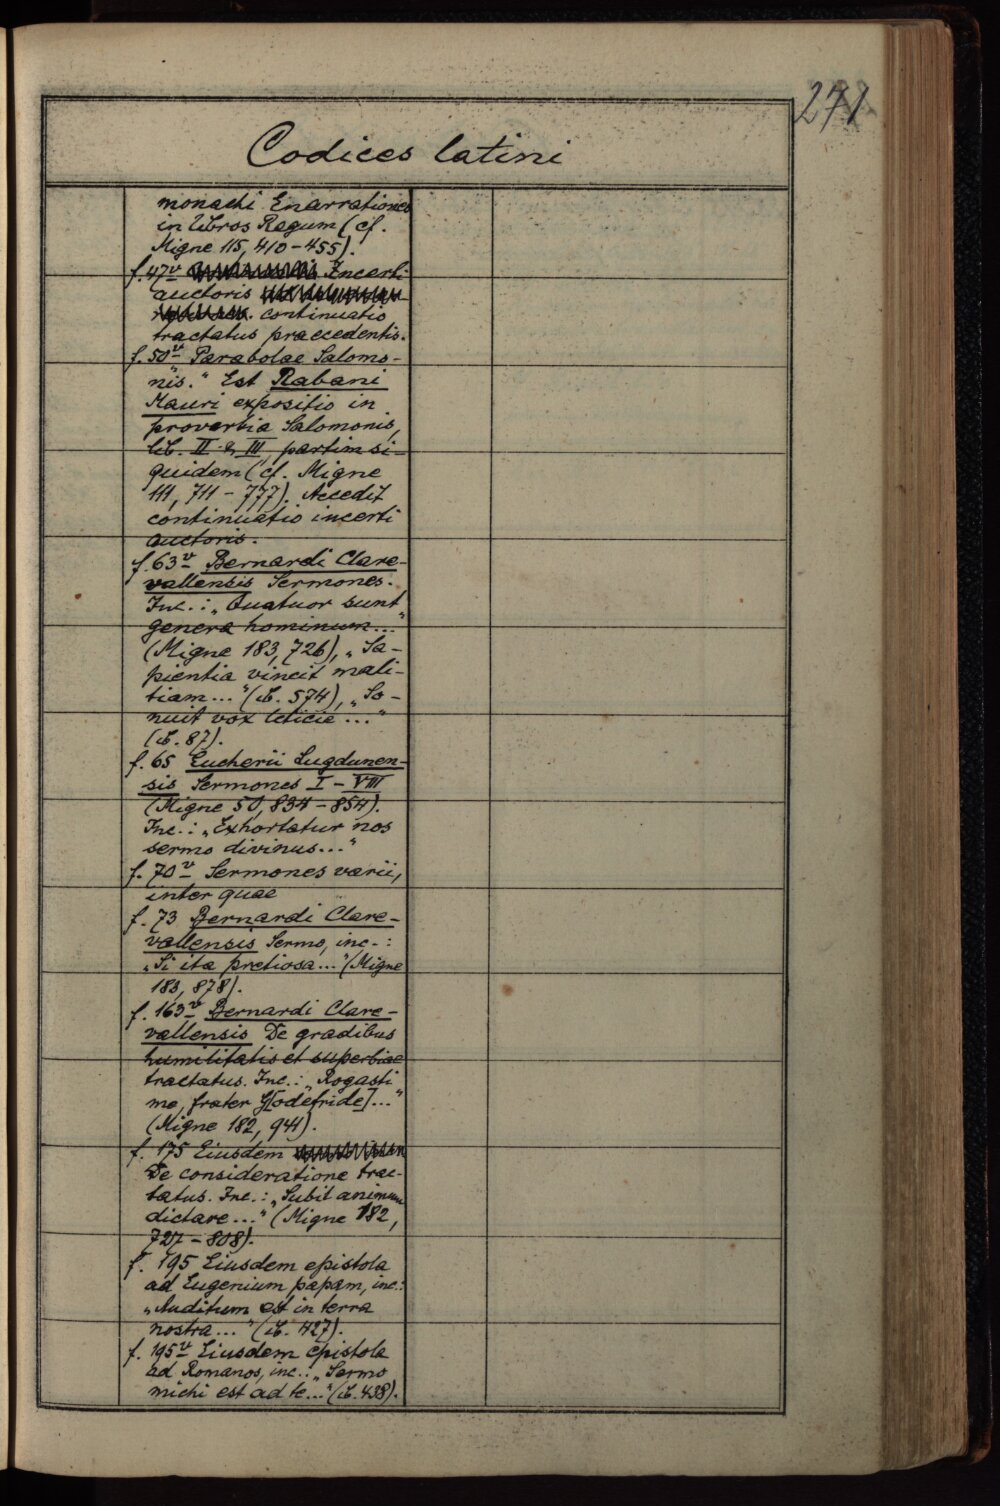 271
Codices latini
monachi Enarrationes
in libros Regum (cf.
Migne 115, 410-455).
f. 47v Incerti
auctoris
continuatio
tractatus praecedentis.
f. 50v „Parabolae Salomo-
nis." Est Rabani
Mauri expositio in
proverbia Salomonis,
lib. II & III, partim si-
quidem (cf. Migne
111, 711-777). Accedit
continuatio incerti
auctoris.
f. 63v Bernardi Clare-
vallensis Sermones.
Inc.: „Quatuor sunt
genera hominum..."
(Migne 183, 726), „Sa-
pientia vincit mali-
tiam..." (ib. 574), „So-
nuit vox leticie..."
(ib. 87).
f. 65 Eucherii Lugdunen-
sis Sermones I-VIII
(Migne 50, 834-854).
Inc.: „Exhortatur nos
sermo divinus..."
f. 70v Sermones varii,
inter quae
f. 73 Bernardi Clare-
vallensis Sermo, inc.:
„Si ita pretiosa..." (Migne
183, 878).
f. 163v Bernardi Clare-
vallensis De gradibus
humilitatis et superbiae
tractatus. Inc.: „Rogasti
me, frater G[odefride]..."
(Migne 182, 941).
f. 175 Eiusdem
De consideratione trac-
tatus. Inc.: „Subit animum
dictare..." (Migne 182,
727-808).
f. 195 Eiusdem epistola
ad Eugenium papam, inc.:
„Auditum est in terra
nostra..." (ib. 427).
f. 195v Eiusdem epistola
ad Romanos, inc.: „Sermo
michi est ad te..." (ib. 438).